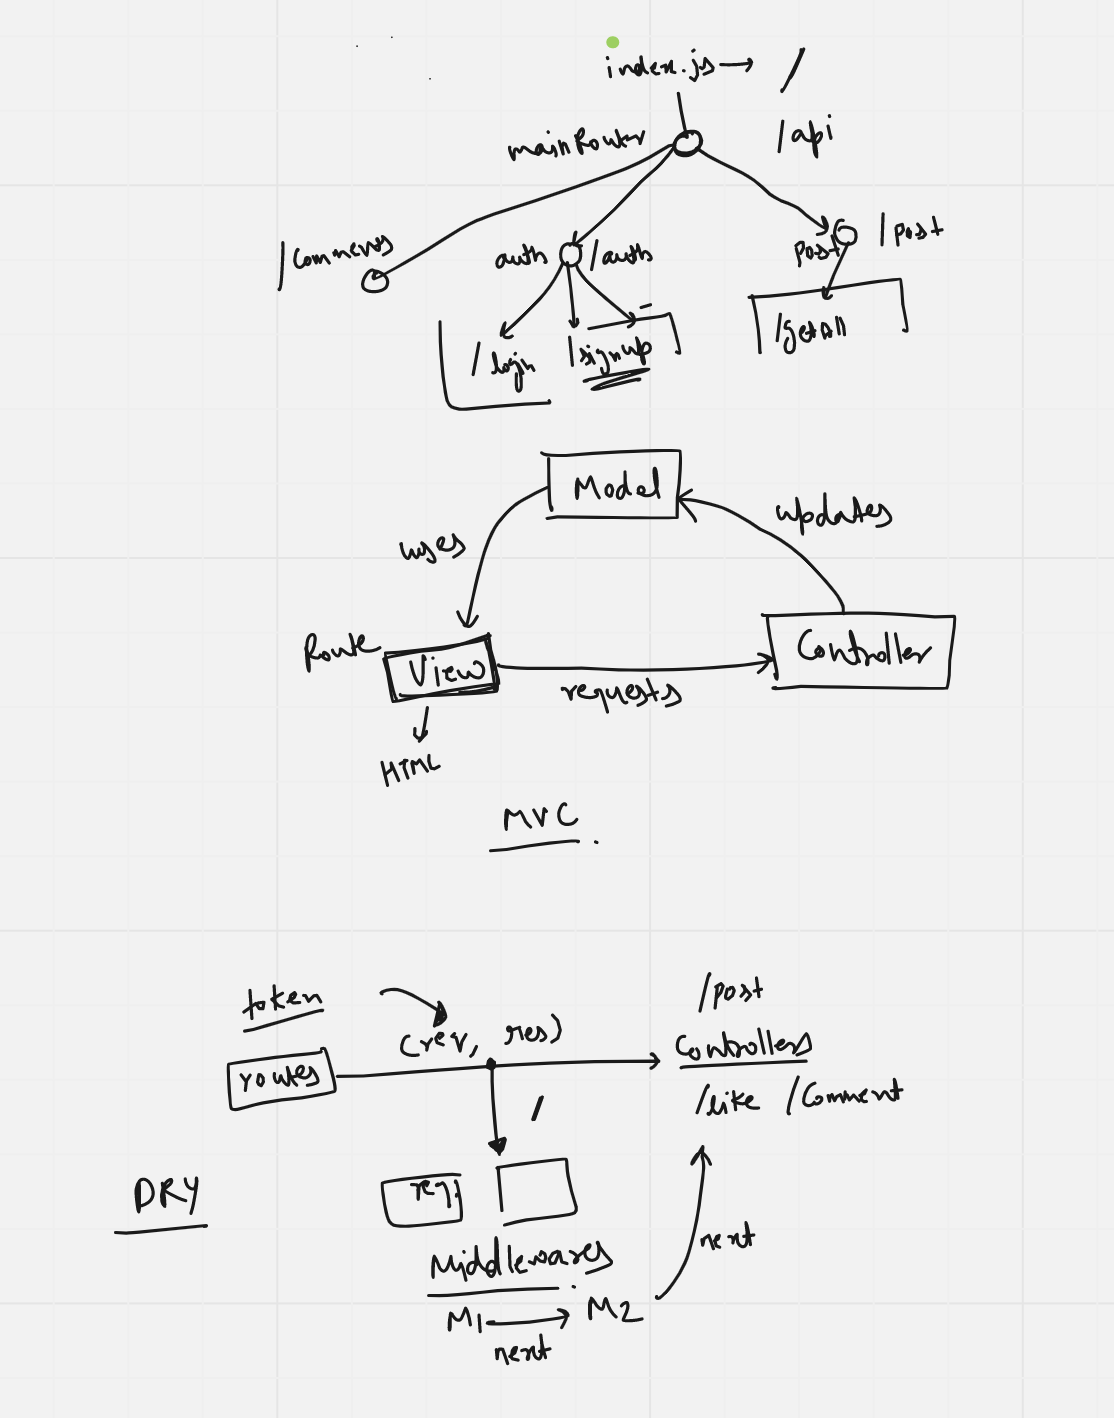 index.js → /
/api
mainRouter
/comments
auth /auth
post /post
/login /signup
/getAll
Model
uses
updates
Route
View
Controller
requests
HTML
MVC.
token
/post
(req, res)
controllers
routes
/like /comment
/
DRY
req.
Middlewares.
next
M1 → M2
next